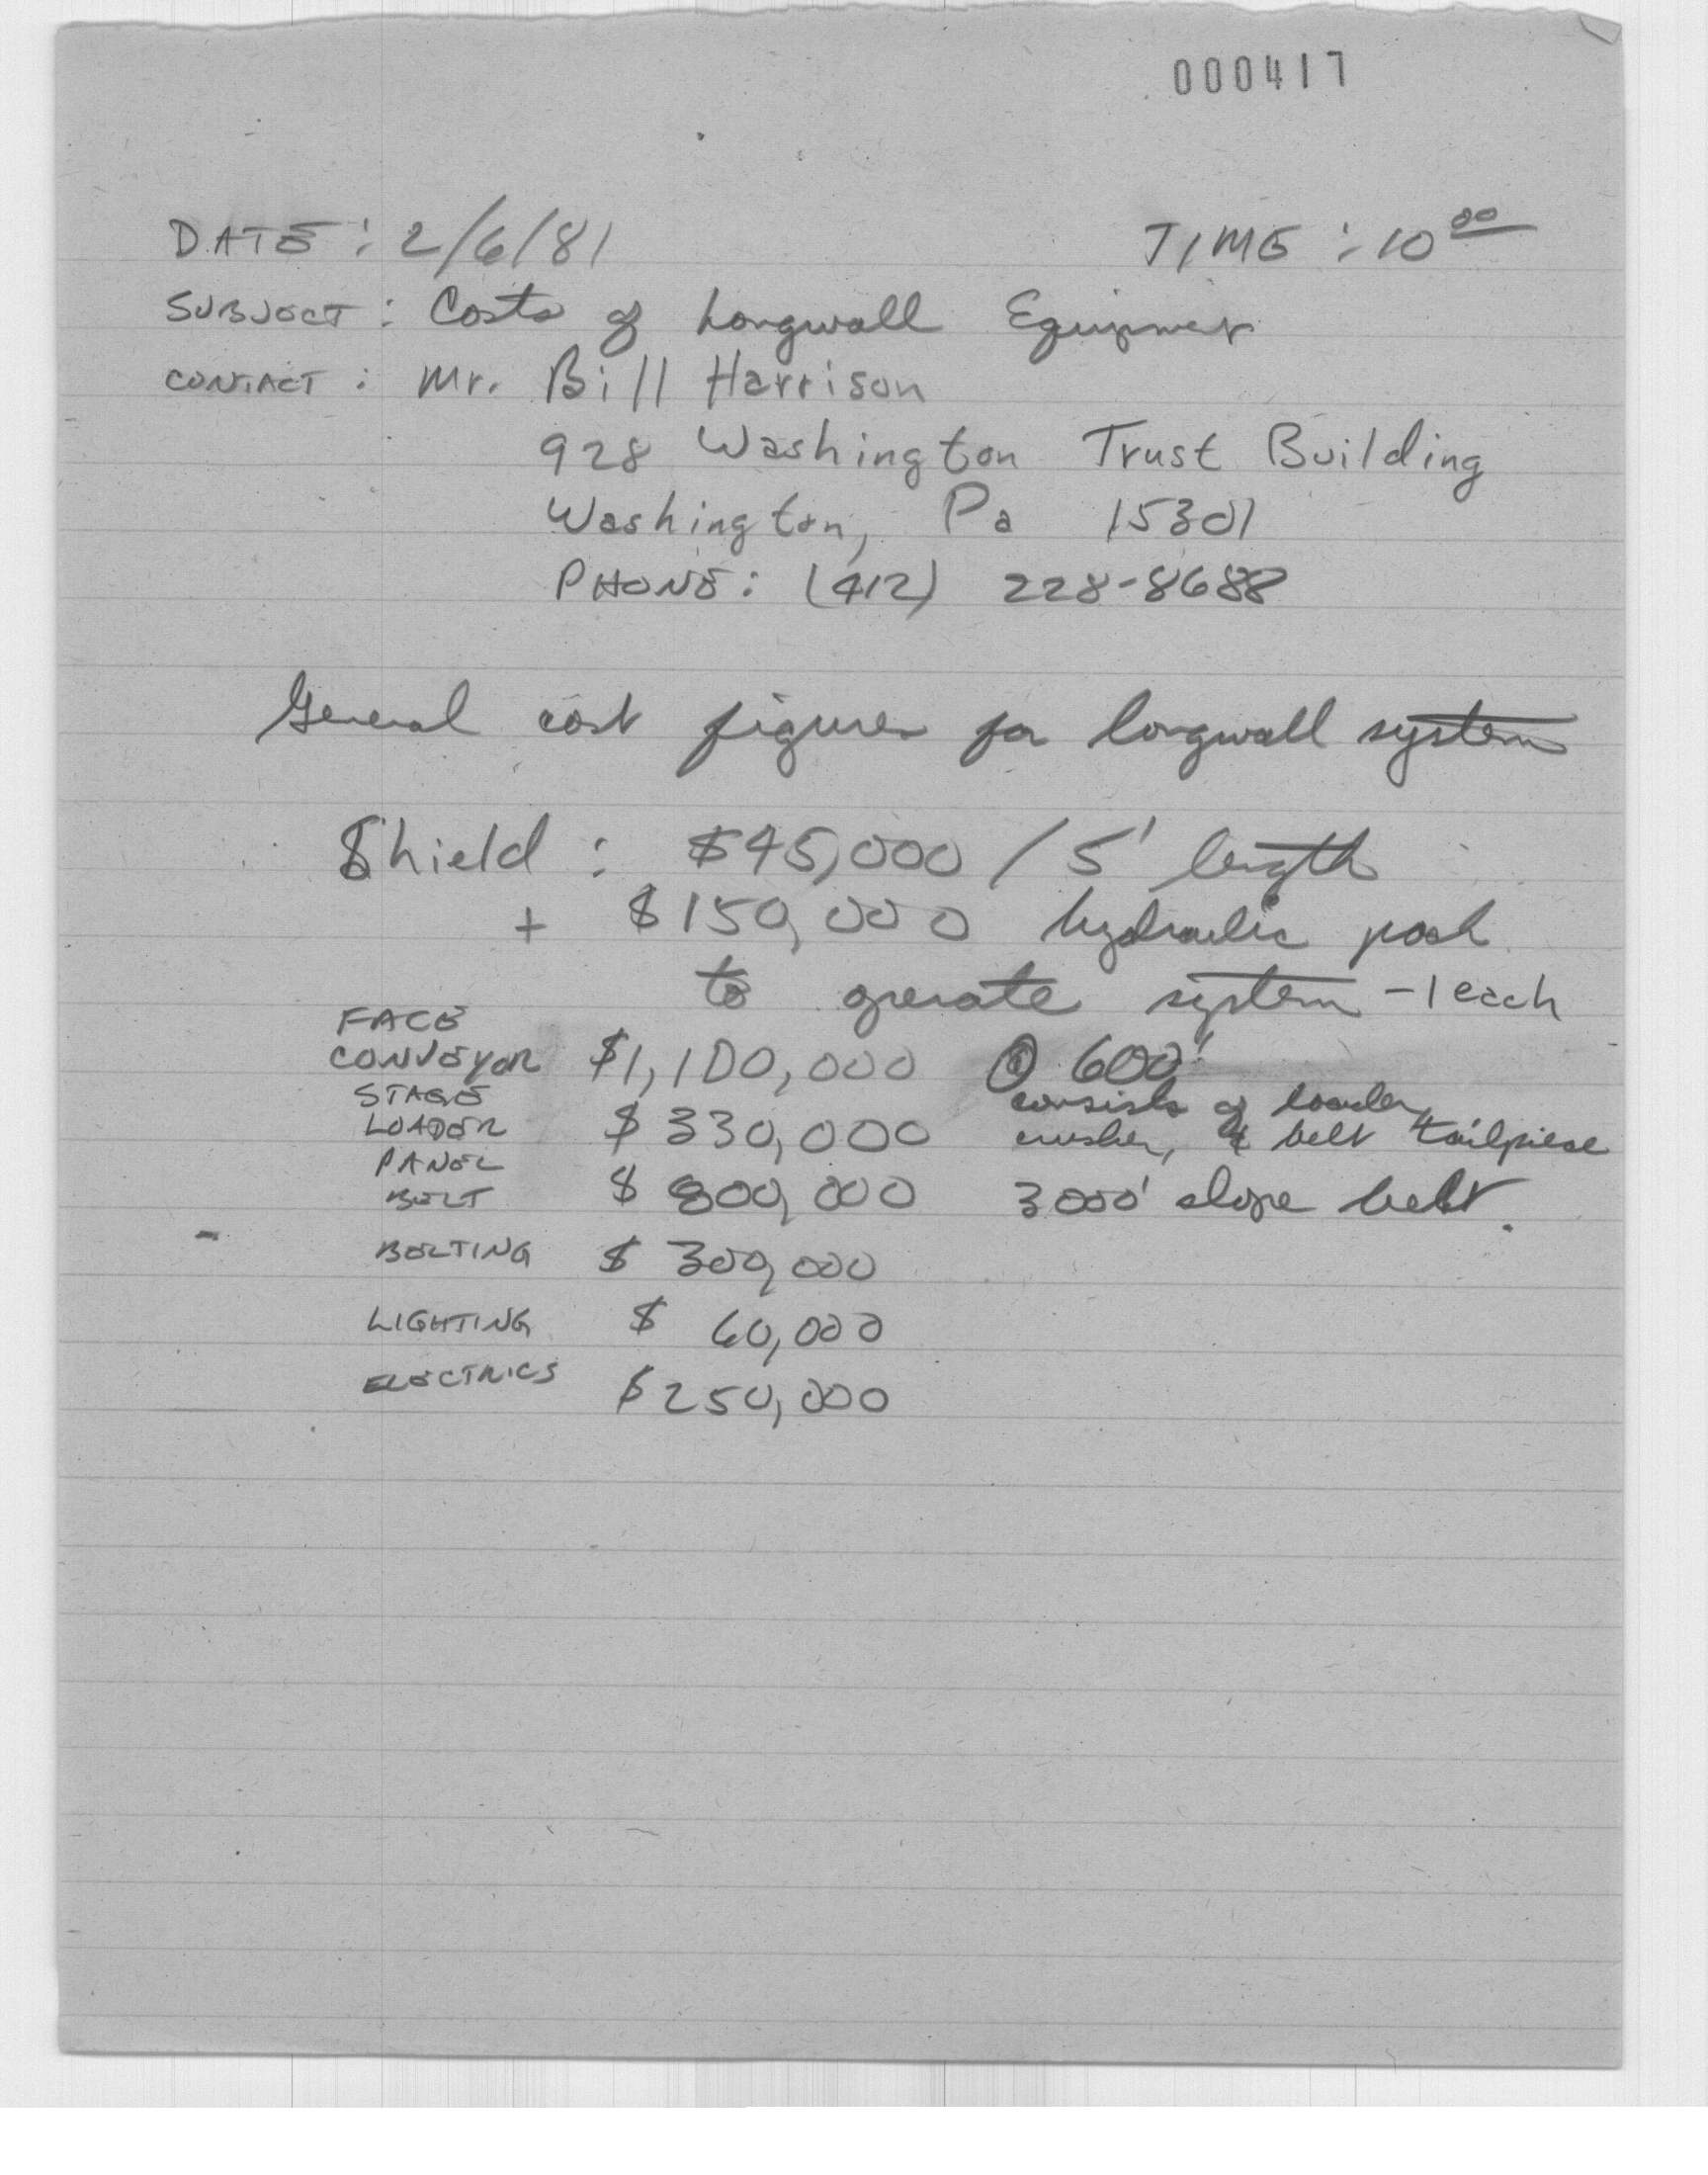 000417
DATE: 2/6/81 TIME: 10 00
SUBJECT: Costs of Longwall Equipment
CONTACT: Mr. Bill Harrison
928 Washington Trust Building
Washington, Pa 15301
PHONE: (412) 228-8688
General cost figures for longwall system
Shield: $45,000 / 5' length
+ $150,000 hydraulic pack
to operate system - 1 each
FACE
CONVEYOR $1,100,000 @ 600'
STAGE consists of loader,
LOADER $330,000 crusher, & belt tailpiece
PANEL
BELT $ 800,000 3000' slope belt.
BELTING $ 300,000
LIGHTING $ 60,000
ELECTRICS $250,000